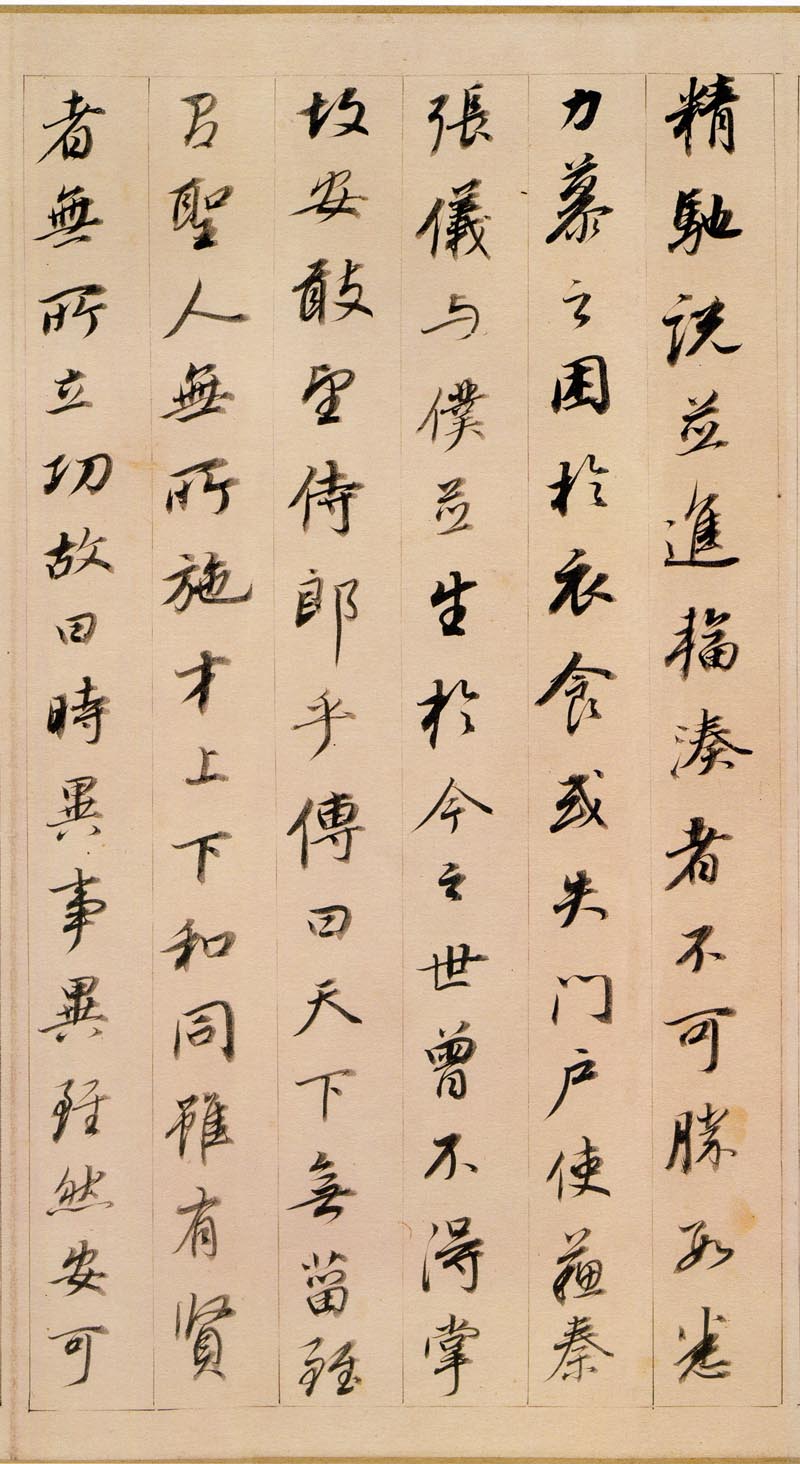 精馳説並進輻湊者不可勝數悉
力慕之困於衣食或失門户使蘇秦
張儀与僕並生於今之世曾不得掌
故安敢望侍郎乎傳曰天下無菑雖
有聖人無所施才上下和同雖有賢
者無所立功故曰時異事異雖然安可